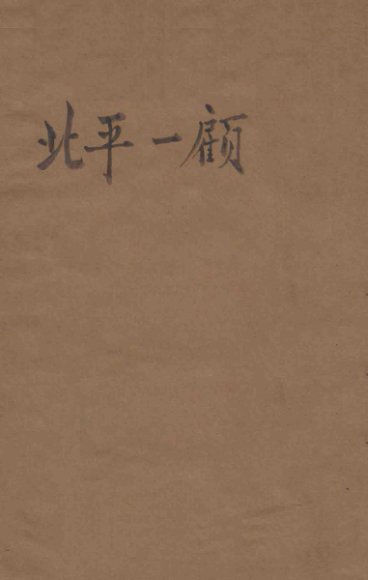 北平一顧